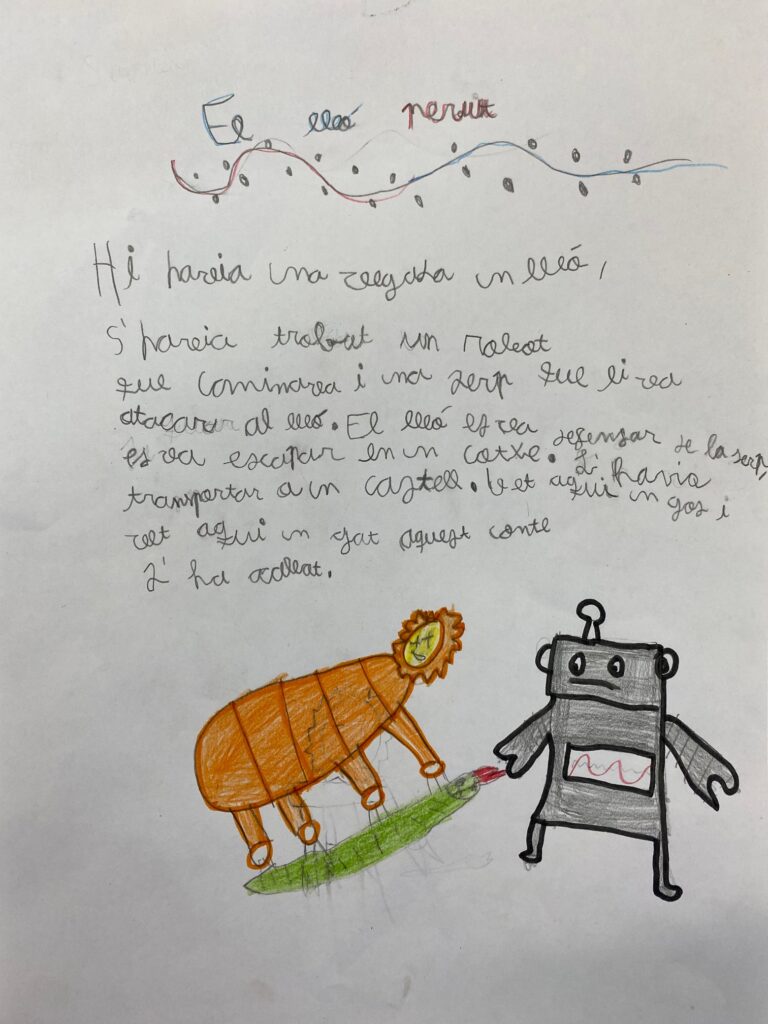 El lleó perut
Hi havia una vegada un lleó,
S'havia trobat un robot
que caminava i una serp que li va
atacar al lleó. El lleó es va defensar de la serp,
es va escapar en un cotxe. L'havia
transportar a un castell. Vet aqui un gos i
vet aqui un gat aquest conte
s'ha acabat.